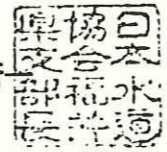 日本水道
協会福井
県支部長